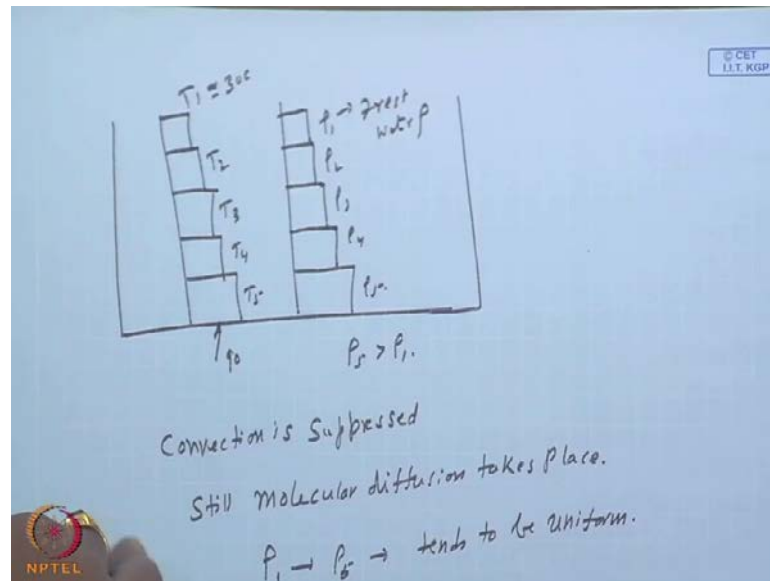 © CET
I.I.T. KGP
T₁ ≈ 30c
T₂
T₃
T₄
T₅
ρ₁ → Fresh
water ρ
ρ₂
ρ₃
ρ₄
ρ₅
90
ρ₅ > ρ₁.
Convection is Suppressed
Still Molecular diffusion takes Place.
ρ₁ → ρ₅ → tends to be uniform.
NPTEL